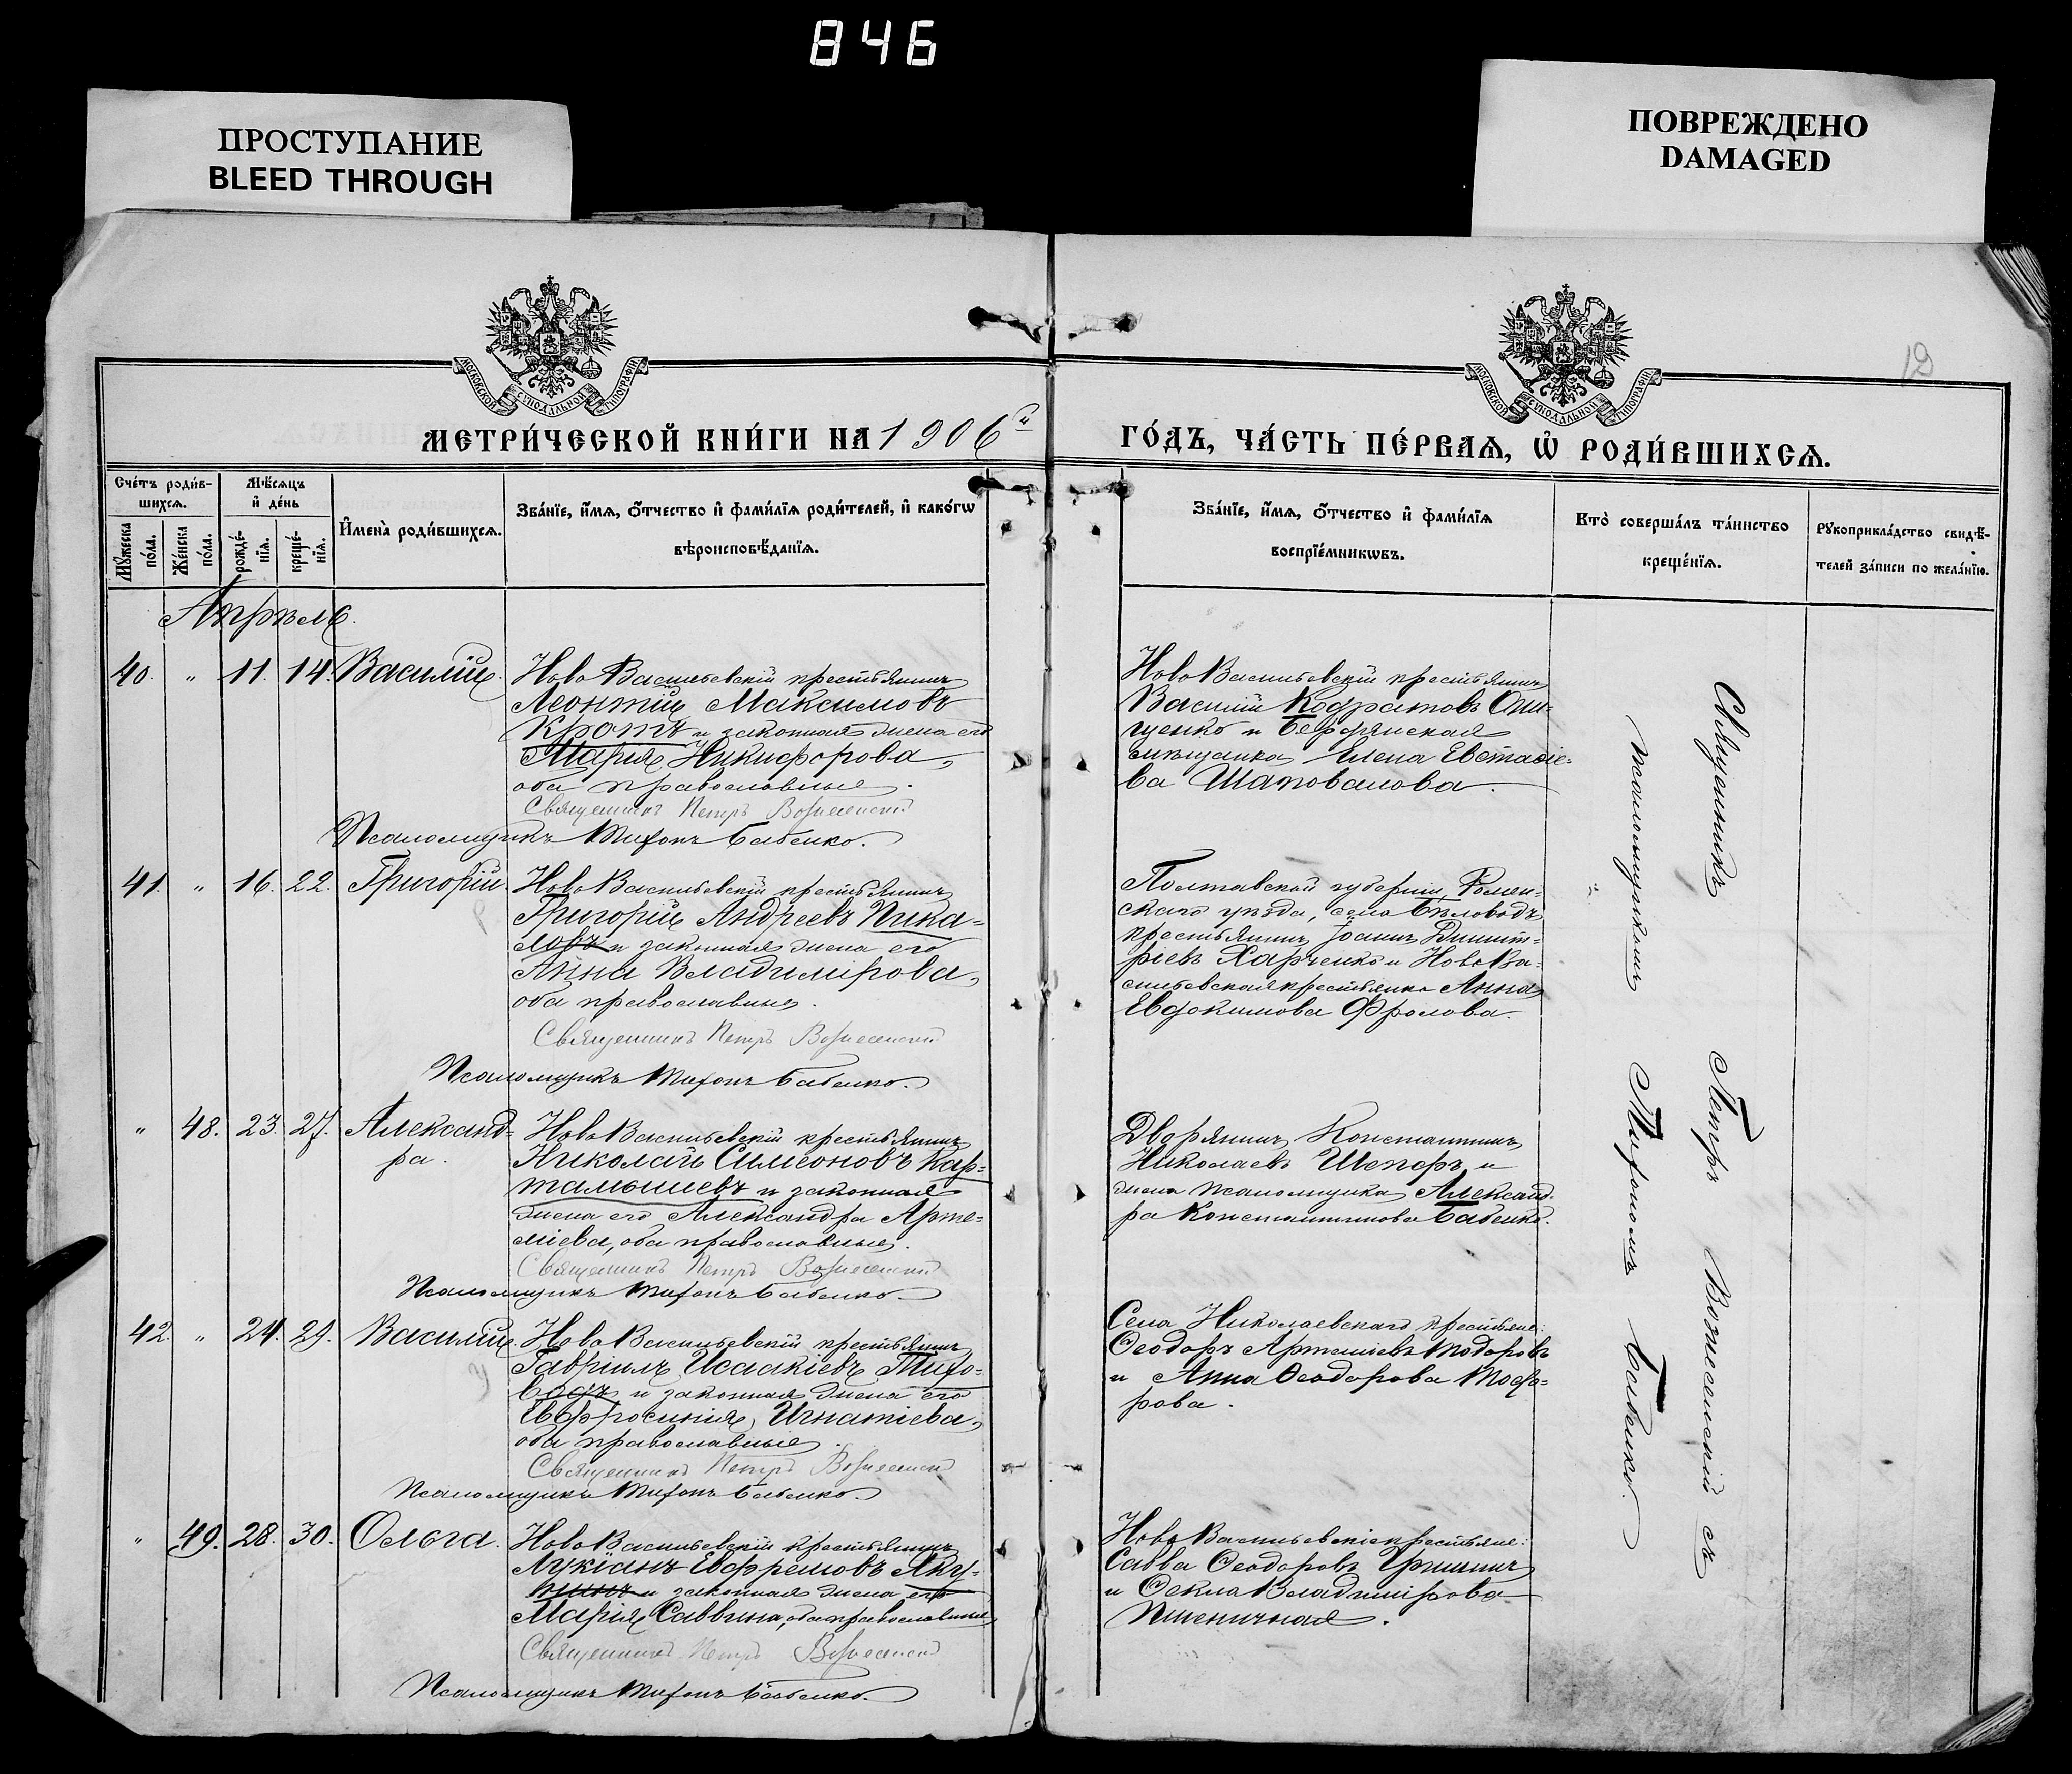 846
ПРОСТУПАНИЕ
BLEED THROUGH
ПОВРЕЖДЕНО
DAMAGED
МОСКОВСКОЙ СѴНОДАЛЬНОЙ ТИПОГРАФІИ
МОСКОВСКОЙ СѴНОДАЛЬНОЙ ТИПОГРАФІИ
МЕТРИ́ЧЕСКОЙ КНИ́ГИ НА 1906й
ГО́ДЪ, ЧА́СТЬ ПЕ́РВАѦ, Ѡ҆ РОДИ́ВШИХСѦ.
Сче́тъ роди́в-
шихсѧ.
Мѣ́сѧцъ
и҆ де́нь
Мꙋ́жеска по́ла.
Же́нска по́ла.
рожде́-нїѧ.
креще́-нїѧ.
И҆мена̀ роди́вшихсѧ.
Зва́нїе, и҆́мѧ, ѻ҆́тчество и҆ фами́лїѧ роди́телей, и҆ како́гѡ
вѣроисповѣ́данїѧ.
Зва́нїе, и҆́мѧ, ѻ҆́тчество и҆ фами́лїѧ
воспрїе́мникѡвъ.
Кто̀ соверша́лъ та́инство
креще́нїѧ.
Рꙋкоприкла́дство свидѣ́-
телей за́писи по жела́нїю.
Апрѣль.
40. " 11. 14. Василій.
Ново Васильевскій крестьянинъ
Леонтій Максимовъ
Кротъ и законная жена его
Марія Никифорова,
оба православные.
Священникъ Петръ Вознесенскій
Псаломщикъ Тифонъ Бабенко.
Ново Васильевскій крестьянинъ
Василій Кодратовъ Они-
щенко и Бердянская
мѣщанка Елена Евстаѳіе-
ва Шаповалова.
41. " 16. 22. Григорій
Ново Васильевскій крестьянинъ
Григорій Андреевъ Пика-
ловъ и законная жена его
Анна Владимірова,
оба православные.
Священникъ Петръ Вознесенскій
Псаломщикъ Тифонъ Бабенко.
Полтавской губерніи, Ромен-
скаго уѣзда, села Бѣловодъ
крестьянинъ Іоаннъ Димит-
ріевъ Харченко и Ново Ва-
сильевская крестьянка Анна
Евдокимова Фролова.
" 48. 23. 27. Александ-
ра.
Ново Васильевскій крестьянинъ
Николай Симеоновъ Кар-
тамышевъ и законная
жена его Александра Арте-
міева, оба православные.
Священникъ Петръ Вознесенскій
Псаломщикъ Тифонъ Бабенко.
Дворянинъ Константинъ
Николаевъ Шепоръ и
жена псаломщика Александ-
ра Константинова Бабенко.
42. " 24. 29. Василій.
Ново Васильевскій крестьянинъ
Гавріилъ Исаакіевъ Тихо-
водъ и законная жена его
Евфросинія Игнатіева,
оба православные.
Священникъ Петръ Вознесенскій
Псаломщикъ Тифонъ Бабенко.
Села Николаевскаго крестьяне:
Ѳеодоръ Артеміевъ Тодоровъ
и Анна Ѳеодорова Тодо-
рова.
" 49. 28. 30. Ольга.
Ново Васильевскій крестьянинъ
Лукіанъ Евфремовъ Яку-
нинъ и законная жена его
Марія Саввина, оба православные
Священникъ Петръ Вознесенскій
Псаломщикъ Тифонъ Бабенко.
Ново Васильевскіе крестьяне:
Савва Ѳеодоровъ Гришинъ
и Ѳекла Владимірова
Пшеничная.
Священникъ Петръ Вознесенскій съ
псаломщикомъ Тифономъ Бабенко.